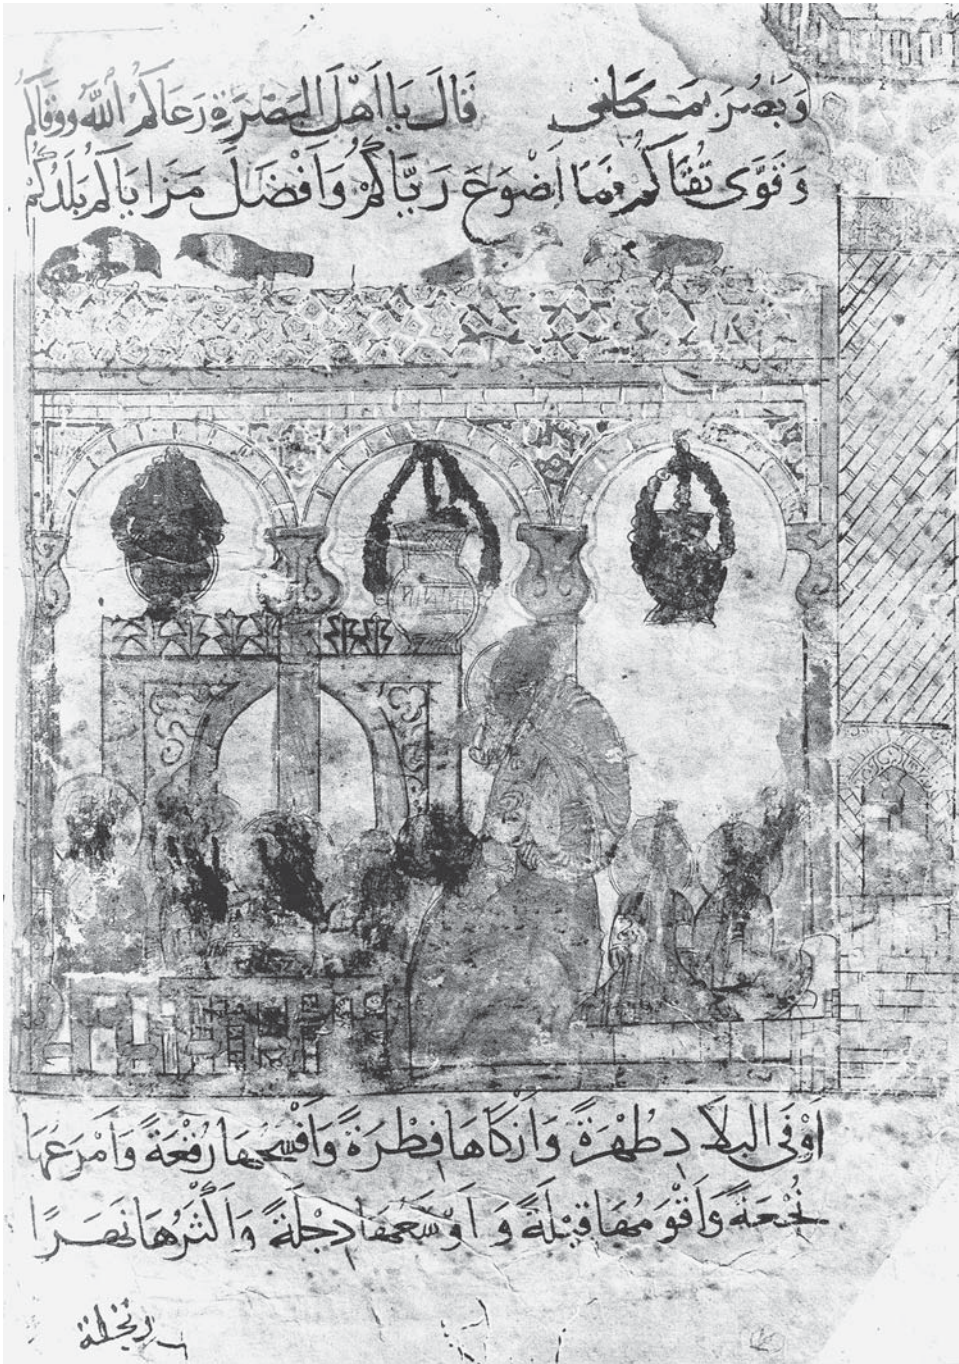 وَبَصُرَ بمَكَانى قَالَ يَا اَهْلَ البَصْرَةِ رَعَاكُمُ اللّٰهُ وَوَقَاكُمْ
وَقَوَّى تُقَاكُمْ فمَا اَضْوَعَ رَيَّاكُمْ وَاَفْضَلَ مَزَايَاكُمْ بَلَدُكُمْ
اَوْفَى البلَادِ طُهْرَةً وَاَزْكَاهَا فِطْرَةً وَاَفْسَحُهَا رُقْعَةً وَاَمْرَعُهَا
نُجْعَةً وَاَقْوَمُهَا قِبْلَةً وَاَوْسَعُهَا دِجْلَةً وَاَكْثَرُهَا نَهَرًا
ونخلة